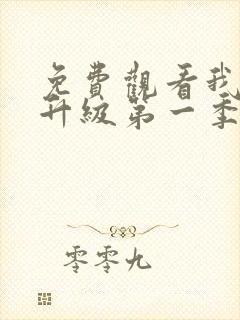 免費觀看我
升級第一季
零零九